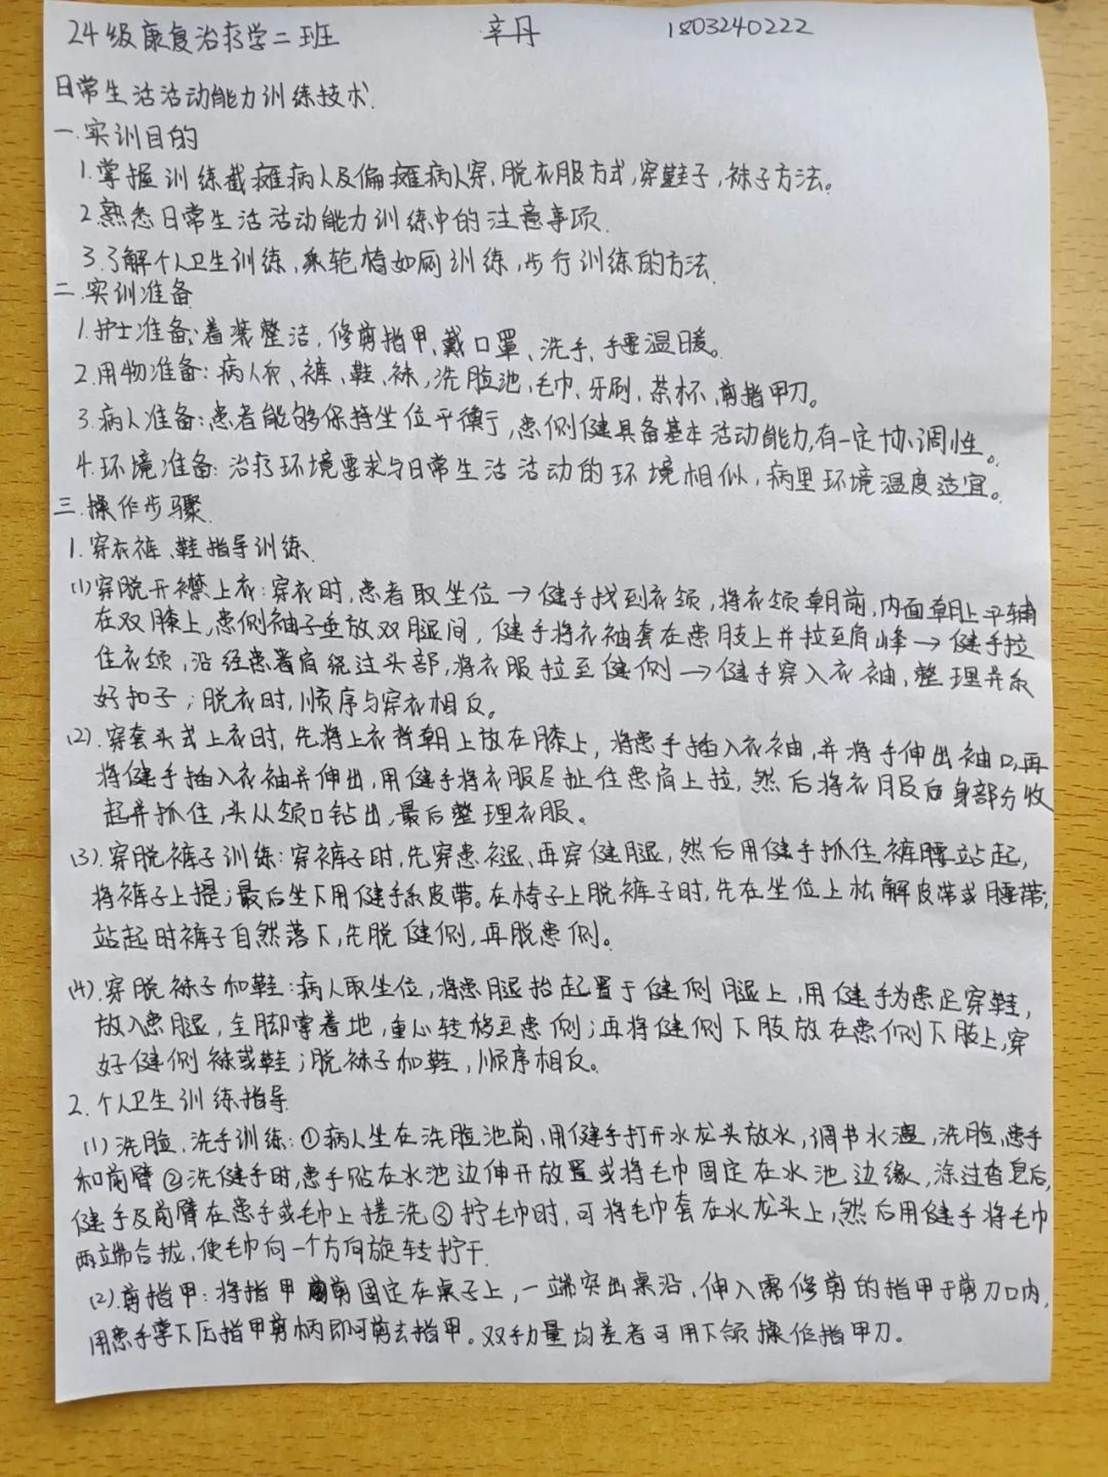 24级康复治疗学二班 辛丹 1803240222
日常生活活动能力训练技术.
一.实训目的
1.掌握训练截瘫病人及偏瘫病人穿、脱衣服方式,穿鞋子,袜子方法。
2.熟悉日常生活活动能力训练中的注意事项.
3.了解个人卫生训练、乘轮椅如厕训练,步行训练的方法.
二.实训准备
1.护士准备:着装整洁,修剪指甲、戴口罩、洗手、手要温暖。
2.用物准备:病人衣、裤、鞋、袜,洗脸池、毛巾、牙刷、茶杯、剪指甲刀。
3.病人准备:患者能够保持坐位平衡,患侧健具备基本活动能力,有一定协调性。
4.环境准备:治疗环境要求与日常生活活动的环境相似,病里环境温度适宜。
三.操作步骤.
1.穿衣裤、鞋指导训练.
(1)穿脱开襟上衣:穿衣时,患者取坐位→健手找到衣领,将衣领朝前,内面朝上平铺
在双膝上,患侧袖子垂放双腿间,健手将衣袖套在患肢上并拉至肩峰→健手拉
住衣领,沿经患着肩绕过头部,将衣服拉至健侧→健手穿入衣袖,整理并系
好扣子;脱衣时,顺序与穿衣相反。
(2).穿套头式上衣时,先将上衣背朝上放在膝上,将患手插入衣袖,并将手伸出袖口,再
将健手插入衣袖并伸出,用健手将衣服尽扯住患肩上拉,然后将衣服后身部分收
起并抓住,头从领口钻出,最后整理衣服。
(3).穿脱裤子训练:穿裤子时,先穿患裉、再穿健腿,然后用健手抓住裤腰站起,
将裤子上提;最后坐下用健手系皮带。在椅子上脱裤子时,先在坐位上松解皮带或腰带;
站起时裤子自然落下,先脱健侧,再脱患侧。
(4).穿脱袜子和鞋:病人取坐位,将患腿抬起置于健侧腿上,用健手为患足穿鞋,
放入患腿,全脚掌着地,重心转移至患侧;再将健侧下肢放在患侧下肢上,穿
好健侧袜或鞋;脱袜子和鞋,顺序相反。
2.个人卫生训练指导
(1)洗脸、洗手训练:①病人坐在洗脸池前,用健手打开水龙头放水,调节水温,洗脸、患手
和前臂②洗健手时,患手贴在水池边伸开放置或将毛巾固定在水池边缘,涂过香皂后,
健手及前臂在患手或毛巾上搓洗③拧毛巾时,可将毛巾套在水龙头上,然后用健手将毛巾
两端合拢,使毛巾向一个方向旋转拧干.
(2)剪指甲:将指甲剪固定在桌子上,一端突出桌沿,伸入需修剪的指甲于剪刀口内,
用患手掌下压指甲剪柄即可剪去指甲。双手力量均差者可用下颌操作指甲刀。